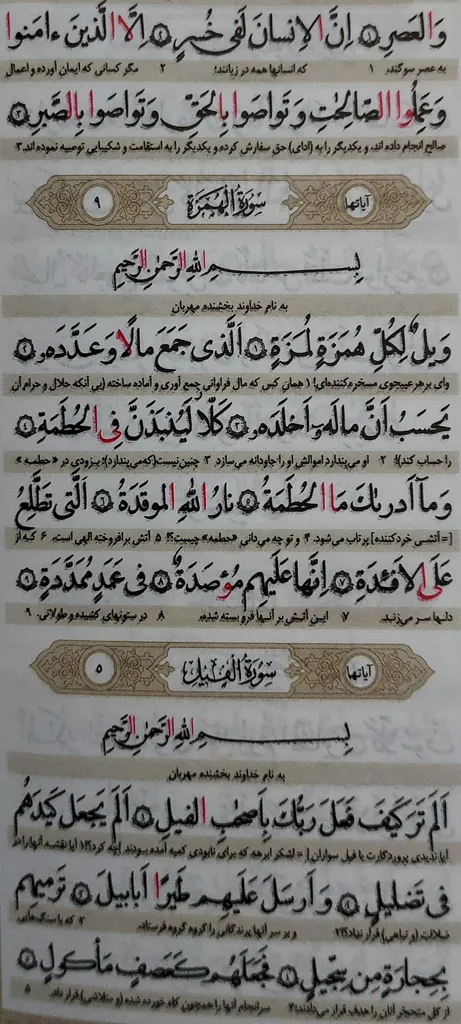 وَالعَصرِ ۱ اِنَّ الاِنسانَ لَفی خُسرٍ ۲ اِلَّا الَّذینَ ءامَنوا
به عصر سوگند، ۱ که انسانها همه در زیانند؛ ۲ مگر کسانی که ایمان آورده و اعمال
وَعَمِلُوا الصّالِحٰتِ وَتَواصَوا بِالحَقِّ وَتَواصَوا بِالصَّبرِ ۳
صالح انجام داده اند، و یکدیگر را به (ادای) حق سفارش کرده و یکدیگر را به استقامت و شکیبایی توصیه نموده اند. ۳
آیاتها سورَةُ الهُمَزَة ۹
بِسمِ اللهِ الرَّحمٰنِ الرَّحیمِ
به نام خداوند بخشنده مهربان
وَیلٌ لِکُلِّ هُمَزَةٍ لُمَزَةٍ ۱ اَلَّذی جَمَعَ مالًا وَعَدَّدَهو ۲
وای بر هر عیبجوی مسخره کننده‌ای! ۱ همان کس که مال فراوانی جمع آوری و آماده ساخته (بی آنکه حلال و حرام آن
یَحسَبُ اَنَّ مالَه‌و اَخلَدَه‌و ۳ کَلّا لَیُنبَذَنَّ فِی الحُطَمَةِ ۴
را حساب کند)! ۲ او می‌پندارد اموالش او را جاودانه می‌سازد. ۳ چنین نیست (که می‌پندارد)؛ بزودی در «حطمه»
وَماۤ اَدرىٰكَ مَا الحُطَمَةُ ۵ نارُ اللهِ الموقَدَةُ ۶ اَلَّتی تَطَّلِعُ
[= آتشی خردکننده] پرتاب می‌شود. ۴ و تو چه می‌دانی «حطمه» چیست؟! ۵ آتش برافروخته الهی است، ۶ که از
عَلَی الاَفئِدَةِ ۷ اِنَّها عَلَیهِم مُؤصَدَةٌ ۸ فی عَمَدٍ مُمَدَّدَةٍ ۹
دلها سر می‌زند. ۷ این آتش بر آنها فرو بسته شده، ۸ در ستونهای کشیده و طولانی. ۹
آیاتها سورَةُ الفیل ۵
بِسمِ اللهِ الرَّحمٰنِ الرَّحیمِ
به نام خداوند بخشنده مهربان
اَلَم تَرَ کَیفَ فَعَلَ رَبُّكَ بِاَصحٰبِ الفیلِ ۱ اَلَم یَجعَل کَیدَهُم
آیا ندیدی پروردگارت با فیل سواران [= لشکر ابرهه که برای نابودی کعبه آمده بودند] چه کرد؟! ۱ آیا نقشه آنها را در
فی تَضلیلٍ ۲ وَاَرسَلَ عَلَیهِم طَیرًا اَبابیلَ ۳ تَرمیهِم
ضلالت (و تباهی) قرار نداد؟! ۲ و بر سر آنها پرندگانی را گروه گروه فرستاد، ۳ که با سنگ‌هایی
بِحِجارَةٍ مِن سِجّیلٍ ۴ فَجَعَلَهُم کَعَصفٍ مَأکولٍ ۵
از گل متحجر آنان را هدف قرار می‌دادند؛ ۴ سرانجام آنها را همچون کاه خورده شده (و متلاشی) قرار داد. ۵